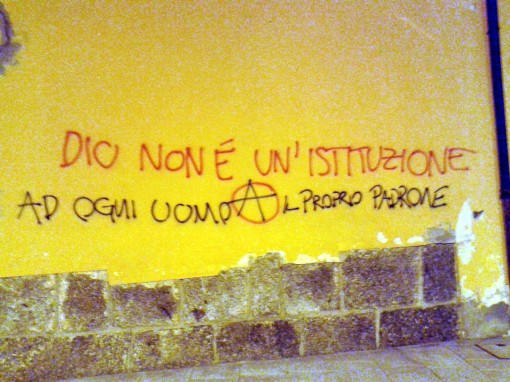 DIO NON É UN'ISTITUZIONE
AD OGNI UOMO AL PROPRIO PADRONE